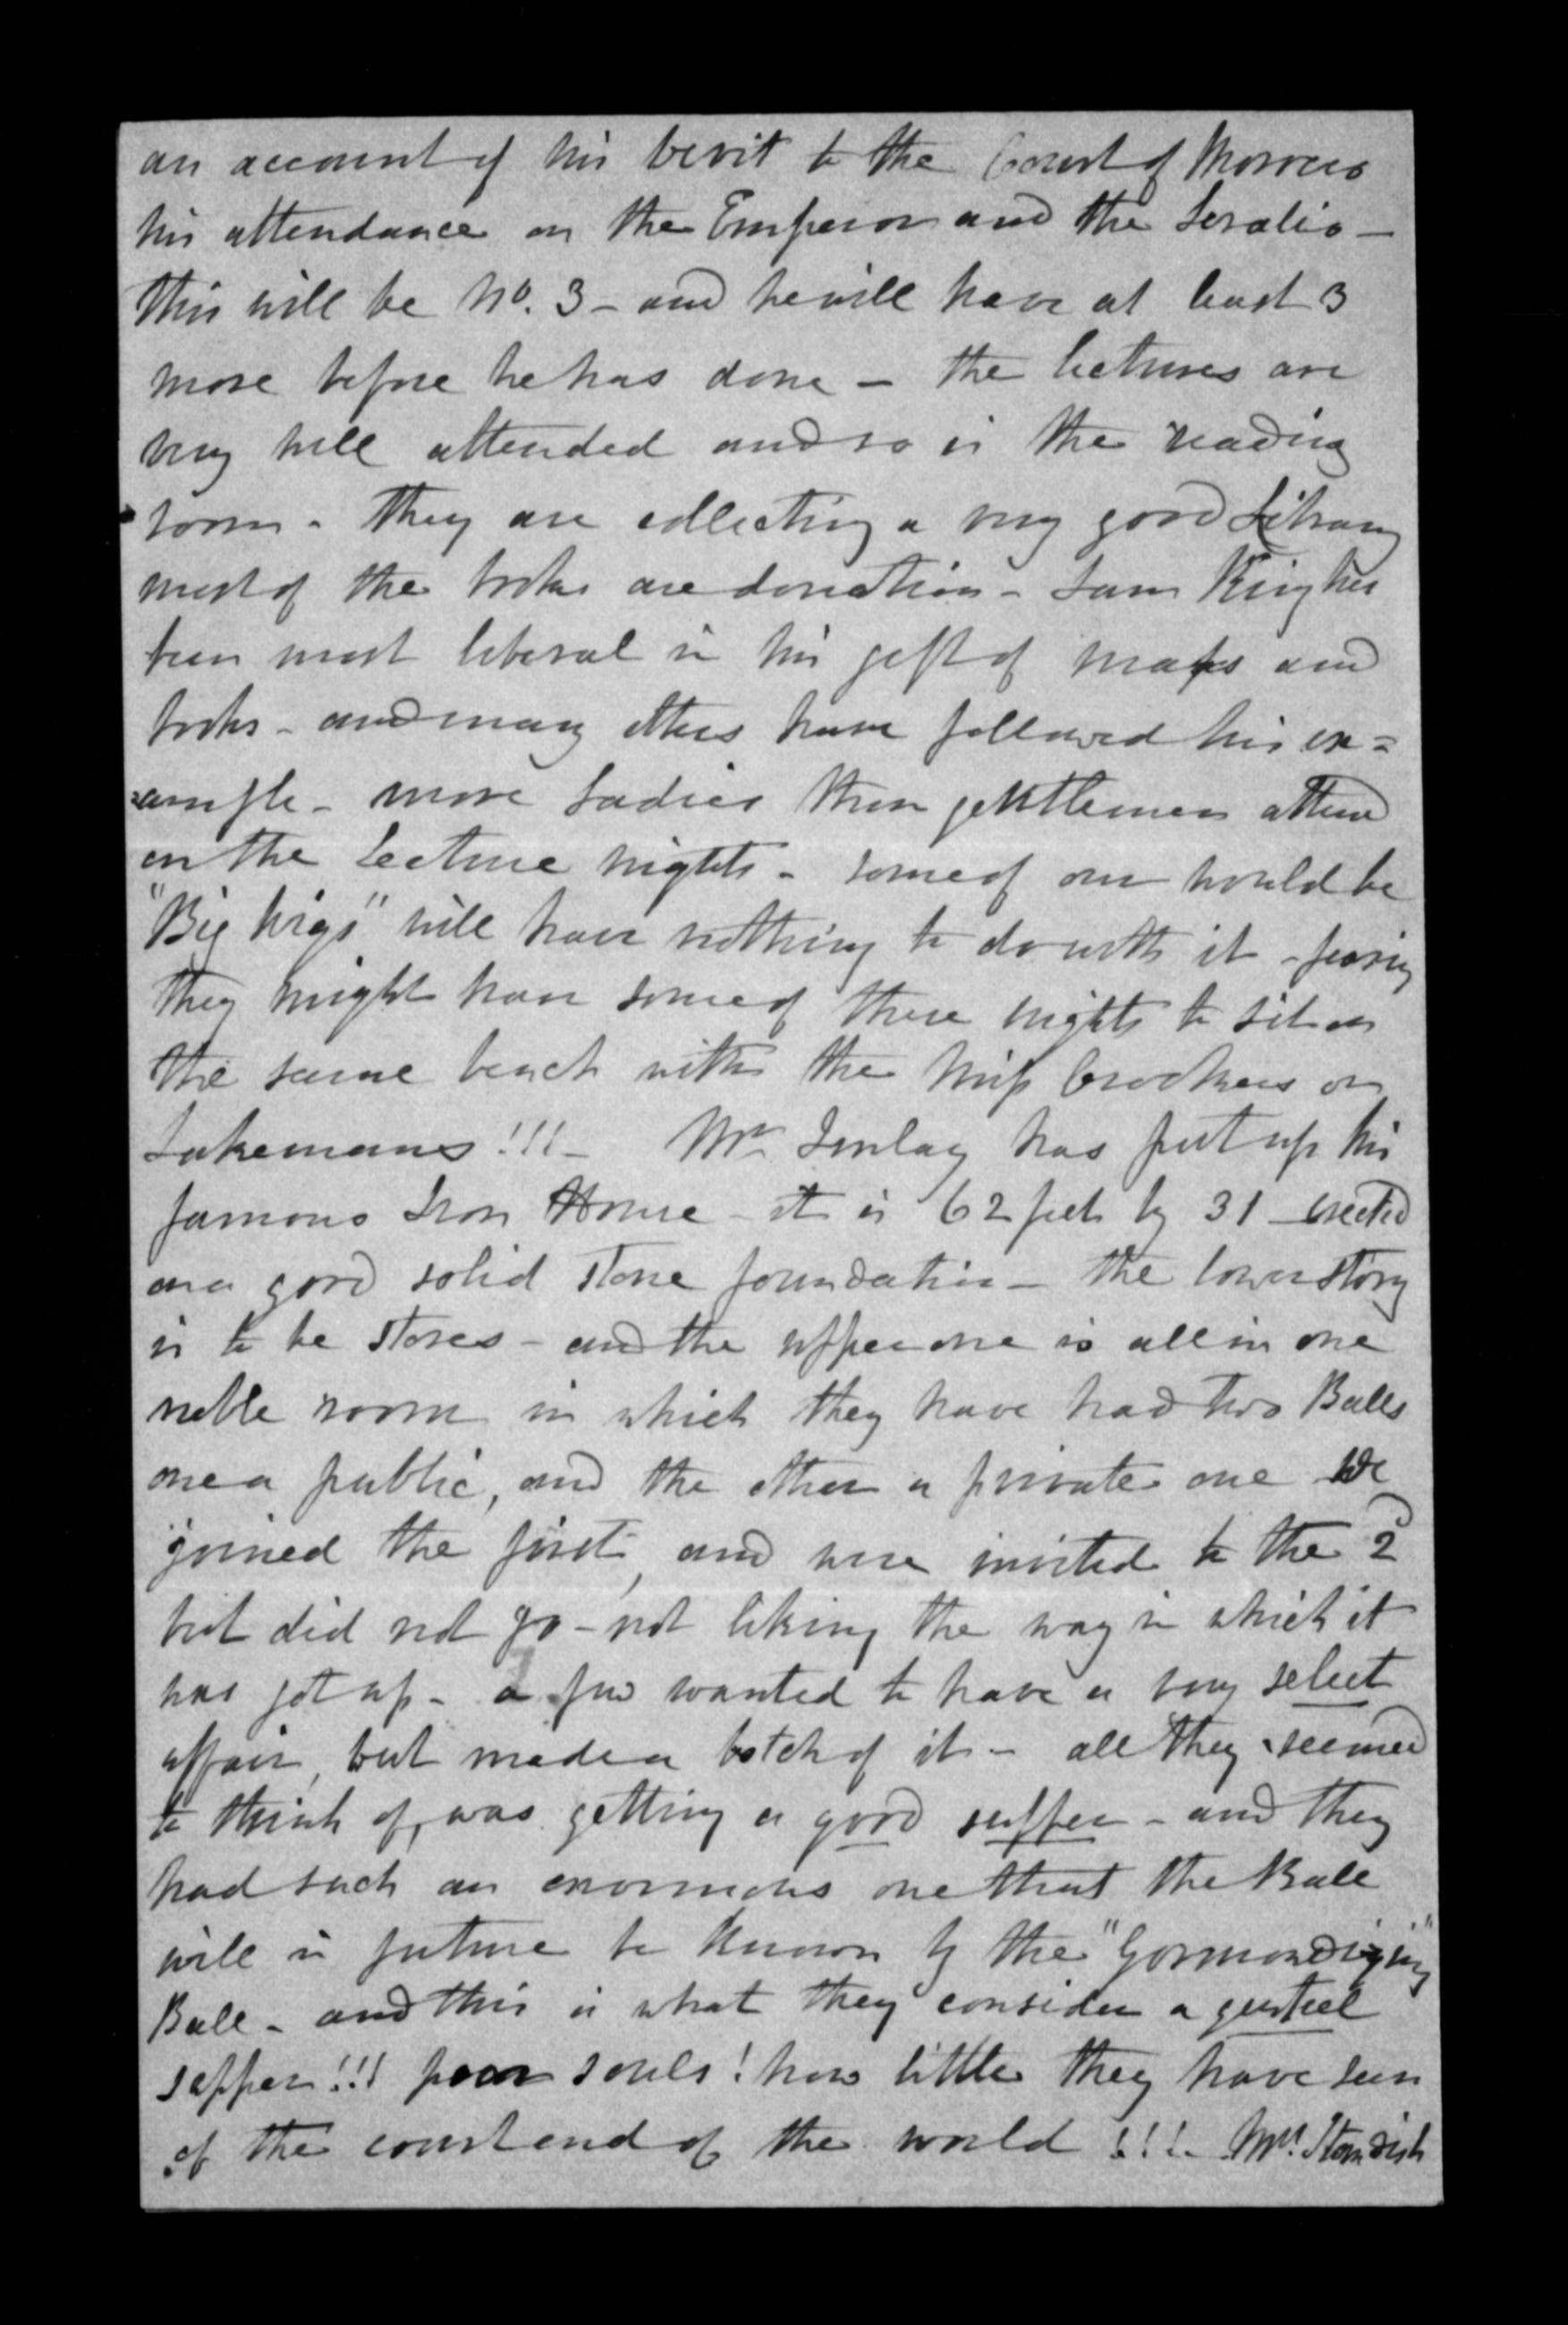 an account of his visit to the Court of Morocco
his attendance on the Emperor and the Seralio -
this will be No. 3 - and he will have at least 3
more before he has done - the lectures are
very well attended and so is the reading
room - they are collecting a very good Library
most of the books are donations - Sam King has
been most liberal in his gift of maps and
books - and many others have followed his ex=
=ample - more Ladies than gentlemen attend
on the Lecture nights - some of our would be
"Big wigs" will have nothing to do with it - fearing
they might have some of these nights to sit on
the same bench with the Miss Crockers or
Lakemans!!! - Mr Imlay has put up his
famous Iron House - it is 62 feet by 31 - erected
on a good solid stone foundation - the lower story
is to be stores - and the upper one is all in one
noble room in which they have had two Balls
one a public, and the other a private one We
joined the first, and were invited to the 2d
but did not go - not liking the way in which it
was got up - a few wanted to have a very select
affair, but made a botch of it - all they seemed
to think of, was getting a good supper - and they
had such an enormous one that the Ball
will in future be known by the "Gormandizing"
Ball - and this is what they consider a genteel
supper!!! poor souls! how little they have seen
of the court end of the world!!! - Mrs. Standish